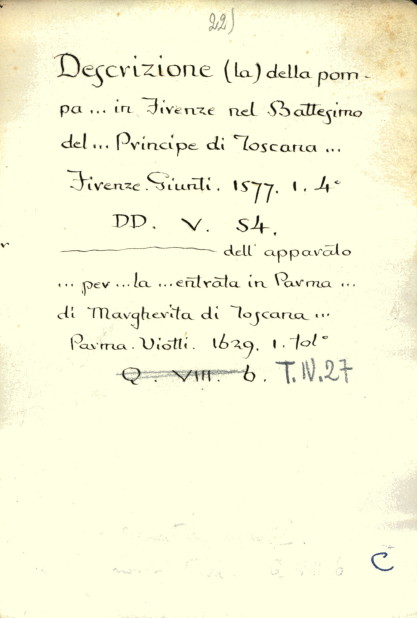 22)
Descrizione (la) della pom-
pa ... in Firenze nel Battesimo
del ... Principe di Toscana ...
Firenze. Giunti. 1577. 1. 4°
DD. V. 54.
——— dell' apparato
... per ... la ... entrata in Parma ...
di Margherita di Toscana ...
Parma. Viotti. 1629. 1. fol°
Q. VIII. 6. T. IV. 27
C